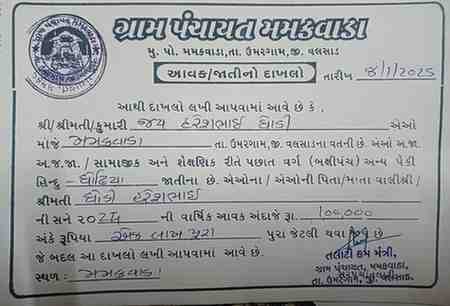 ગ્રામ પંચાયત મમકવાડા
મુ. પો. મમકવાડા, તા. ઉમરગામ, જી. વલસાડ
આવક/જાતીનો દાખલો તારીખ ૪/1/2025
આથી દાખલો લખી આપવામાં આવે છે કે,
શ્રી/શ્રીમતી/કુમારી જય હરેશભાઈ ધોડી એઓ
મોજે મમકવાડા તા. ઉમરગામ, જી. વલસાડના વતની છે. એઓ અ.જા.
અ.જ.જા. / સામાજીક અને શૈક્ષણિક રીતે પછાત વર્ગ (બક્ષીપંચ) અન્ય પૈકી
હિન્દુ - ધોડિયા જાતીના છે. એઓના / એઓની પિતા/માતા વાલીશ્રી/
શ્રીમતી ધોડી હરેશભાઈ
ની સને ૨૦૨૪ ની વાર્ષિક આવક અંદાજે રૂા. ૧૦૦,૦૦૦
અંકે રૂપિયા એક લાખ પુરા પુરા જેટલી થવા જાય છે
જે બદલ આ દાખલો લખી આપવામાં આવે છે.
સ્થળ : મમકવાડા
તલાટી કમ મંત્રી,
ગ્રામ પંચાયત, મમકવાડા,
તા. ઉમરગામ, જી. વલસાડ